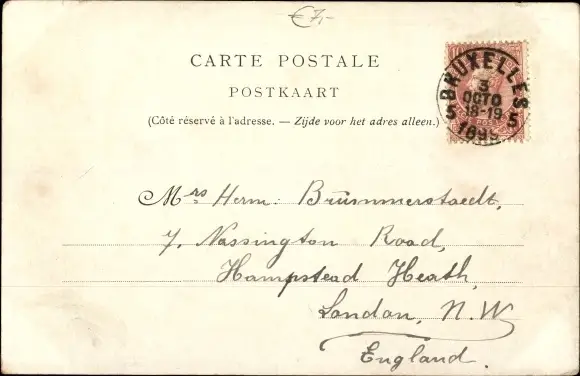 €7,-
CARTE POSTALE
POSTKAART
(Côté réservé à l'adresse. — Zijde voor het adres alleen.)
BRUXELLES
3
OCTO
18-19
5 5
1899
Mrs Herm: Brümmerstaedt,
7, Nassington Road,
Hampstead Heath,
London, N.W
England.